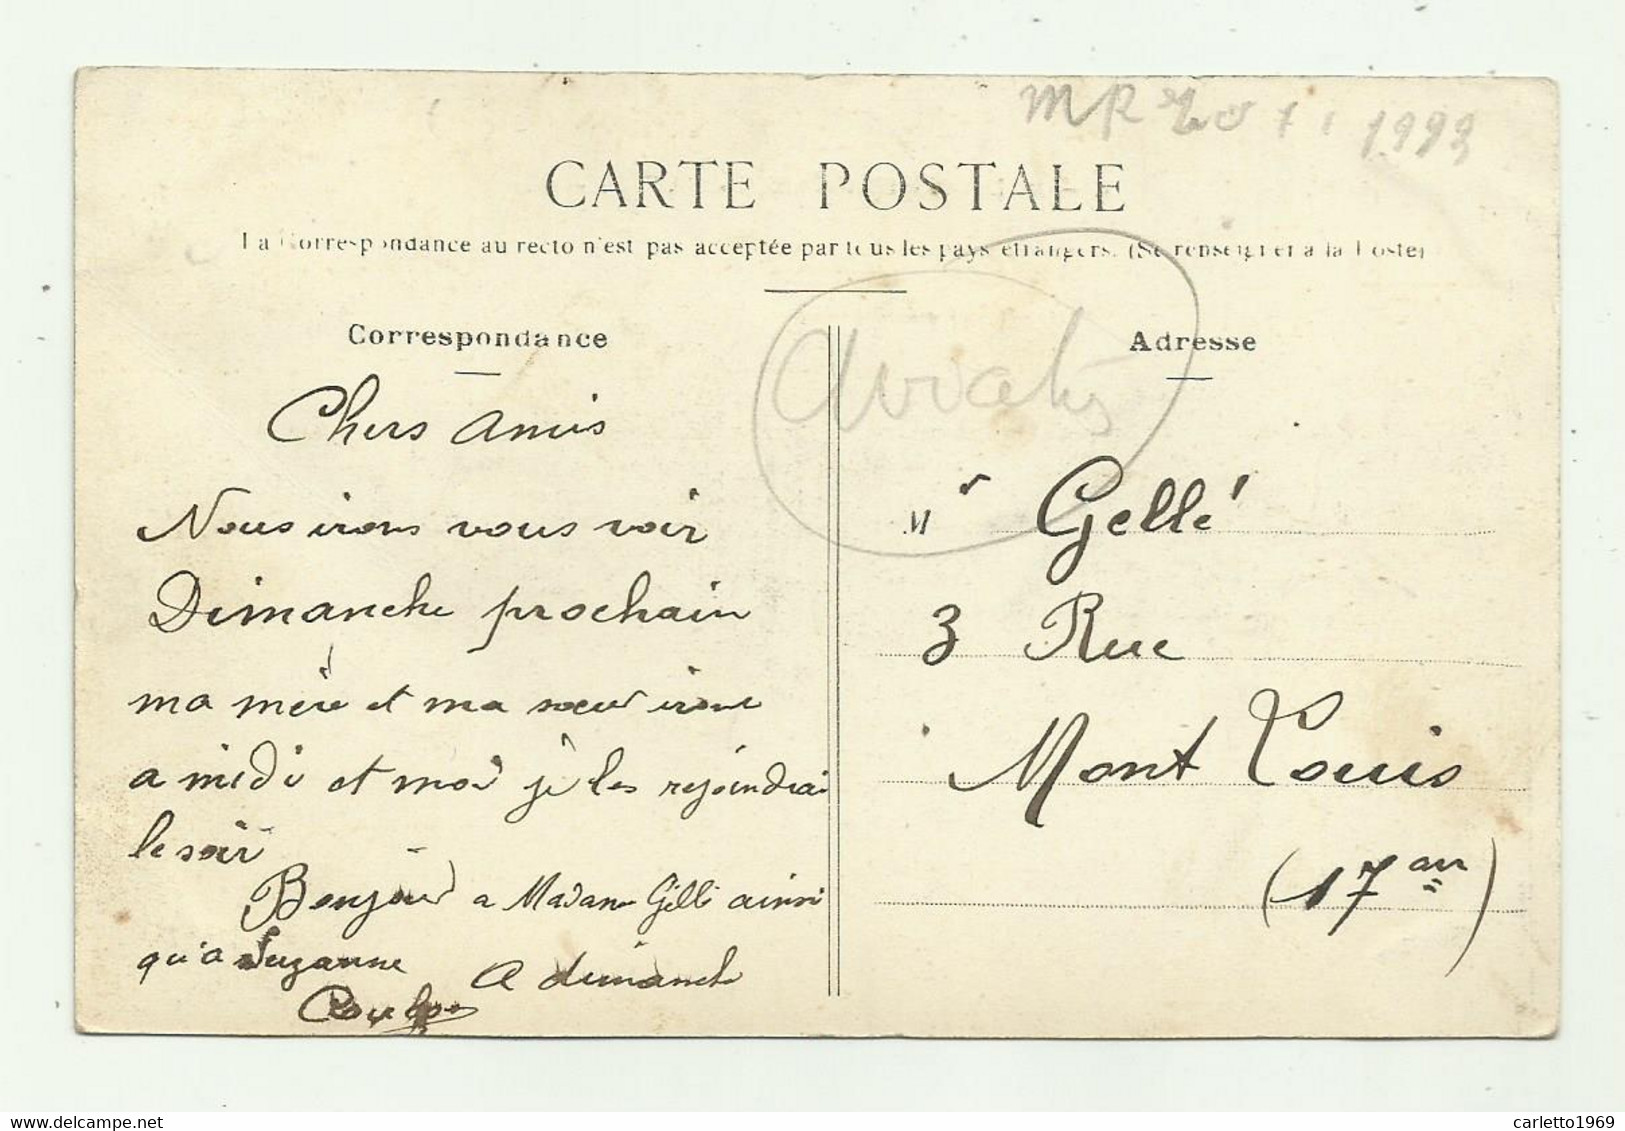 CARTE POSTALE
La Correspondance au recto n'est pas acceptée par tous les pays étrangers. (Se renseigner à la Poste)
Correspondance
Chers amis
Nous irons vous voir
Dimanche prochain
ma mère et ma soeur iront
a midi et moi je les rejoindrai
le soir
Bonjour a Madame Gellé ainsi
qu'a Suzanne
A dimanche
Adresse
Mr Gellé
3 Rue
Mont Louis
(17 arr)
1993
carletto1969